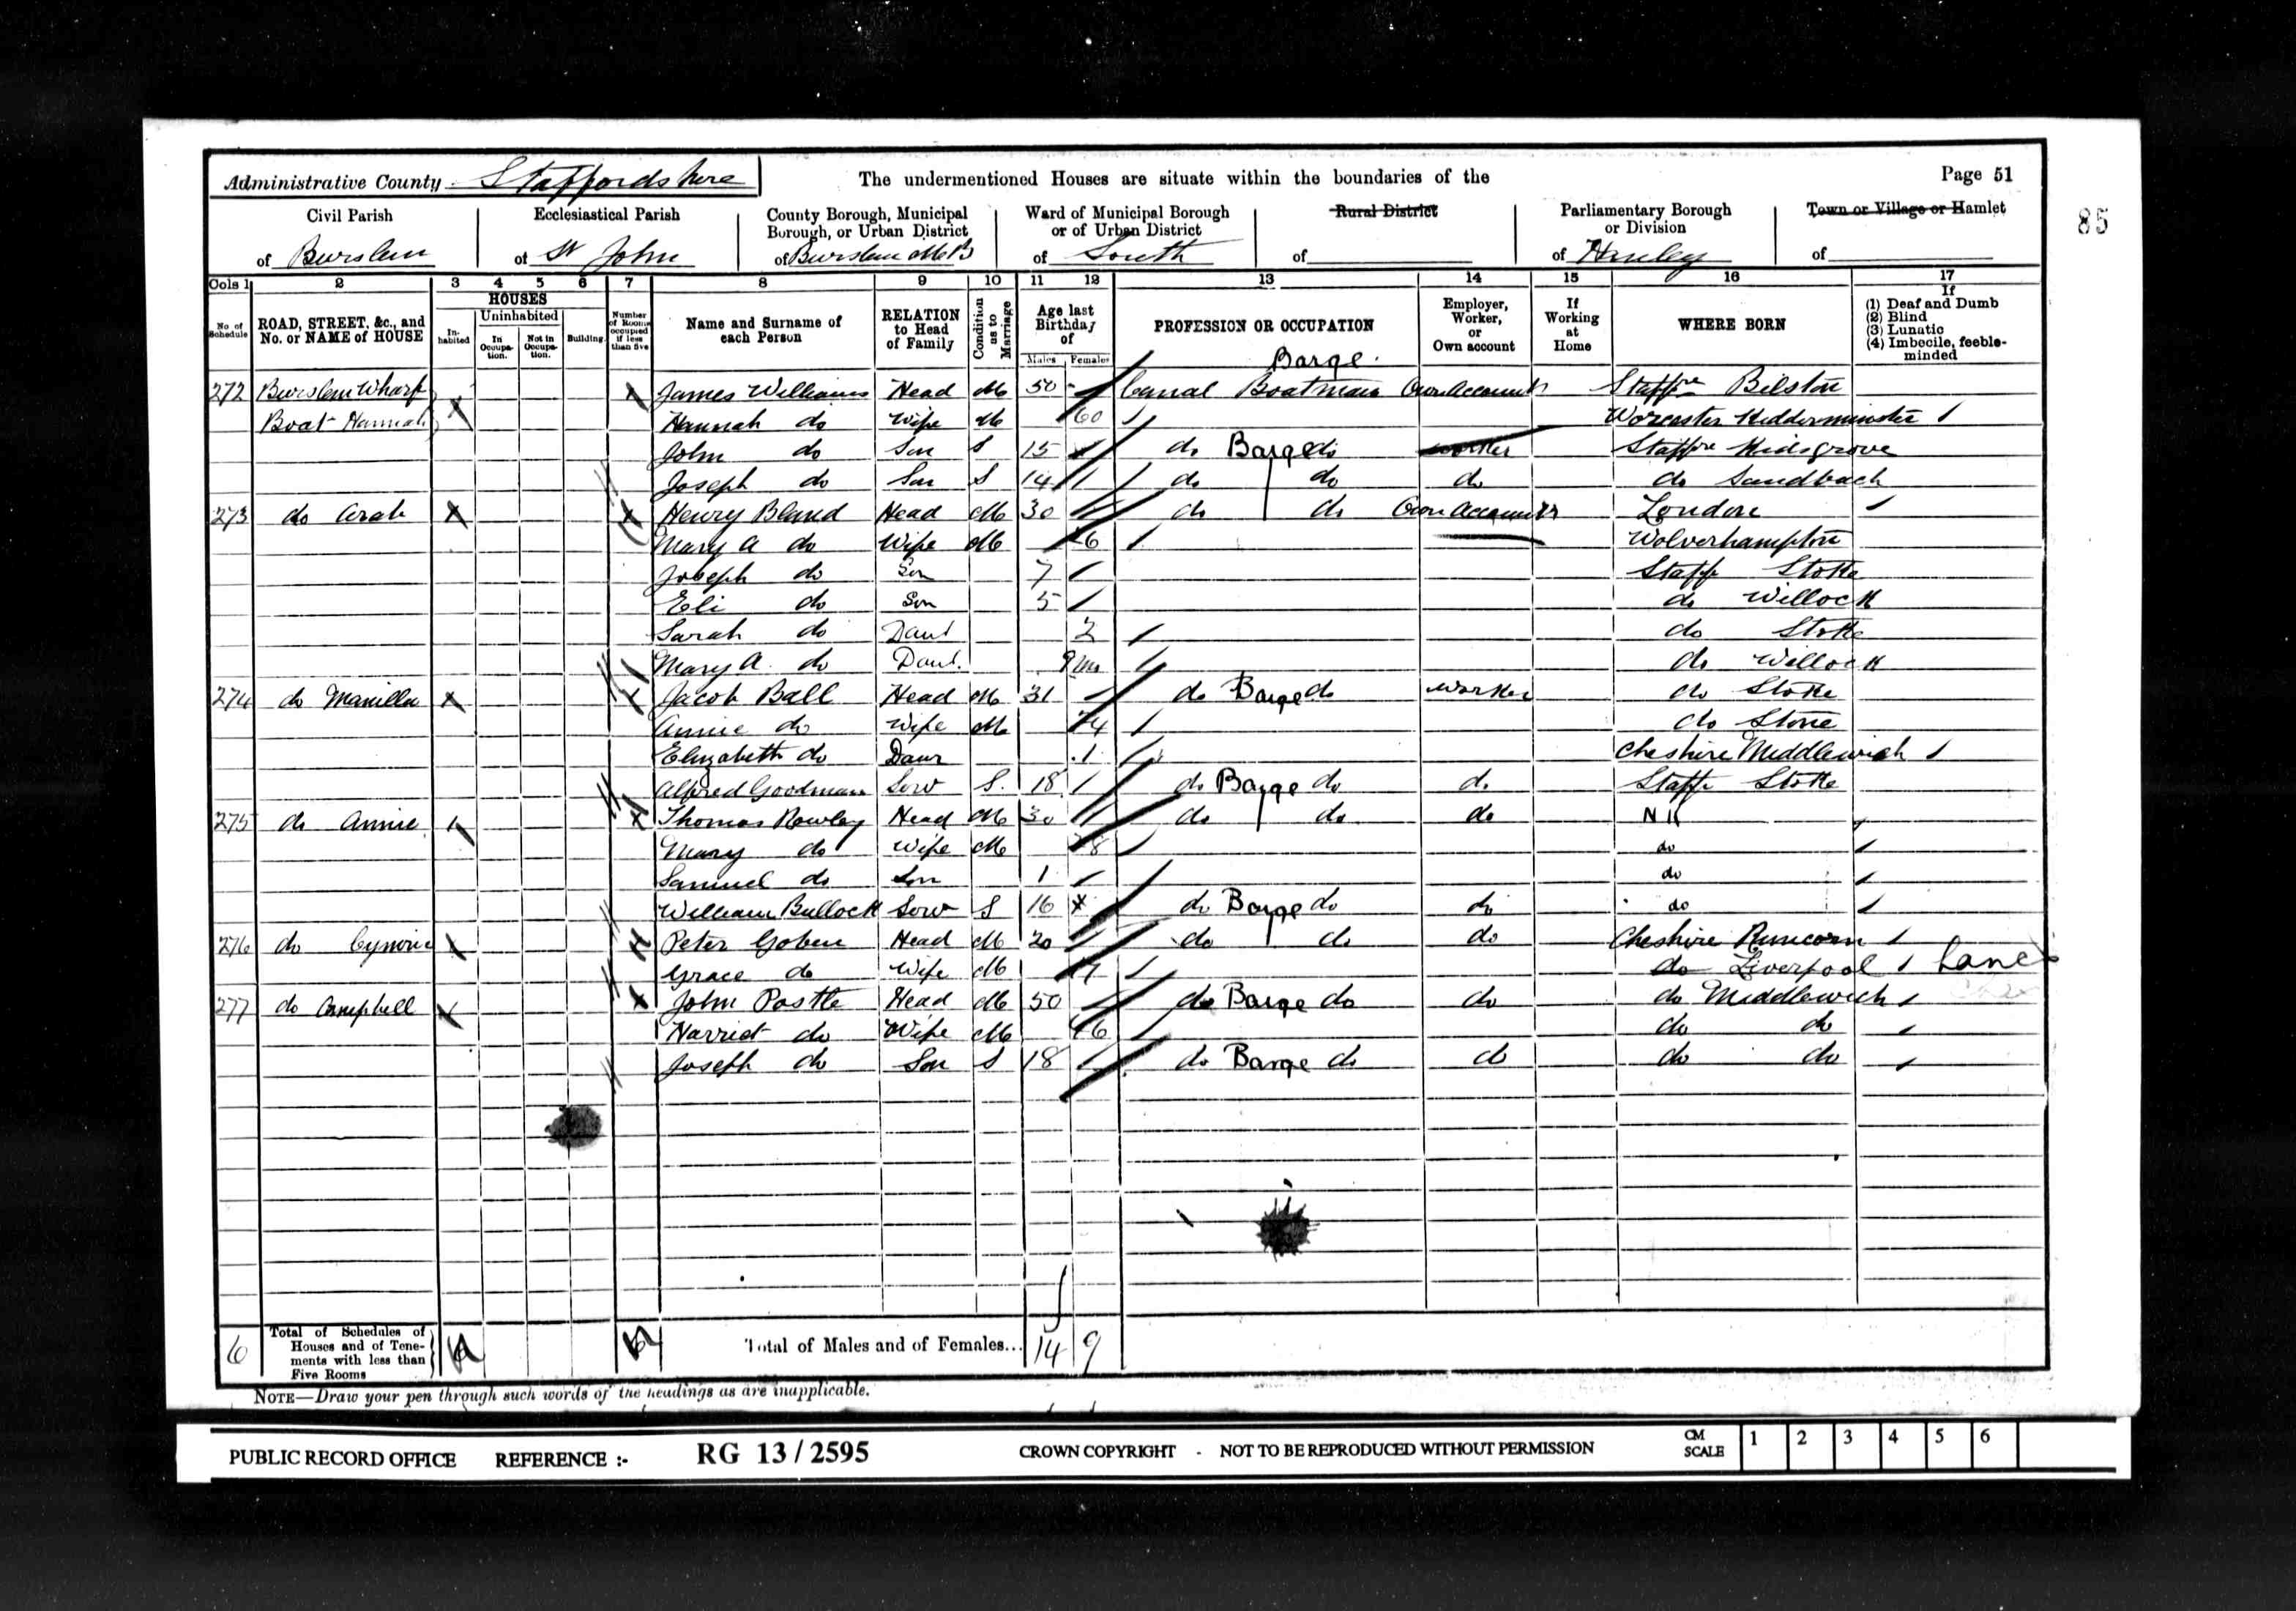 Administrative County Staffordshire The undermentioned Houses are situate within the boundaries of the Page 51
85
Civil Parish of Burslem
Ecclesiastical Parish of St John
County Borough, Municipal Borough, or Urban District of Burslem M B
Ward of Municipal Borough or of Urban District of South
Rural District of
Parliamentary Borough or Division of Hanley
Town or Village or Hamlet of
Cols 1 2 3 4 5 6 7 8 9 10 11 12 13 14 15 16 17
No. of Schedule
ROAD, STREET, &c., and No. or NAME of HOUSE
HOUSES
Inhabited
Uninhabited
In Occupation.
Not in Occupation.
Building.
Number of Rooms occupied if less than five
Name and Surname of each Person
RELATION to Head of Family
Condition as to Marriage
Age last Birthday of
Males Females
PROFESSION OR OCCUPATION
Employer, Worker, or Own account
If Working at Home
WHERE BORN
If
(1) Deaf and Dumb
(2) Blind
(3) Lunatic
(4) Imbecile, feeble-minded
Barge
272 Burslem Wharf James Williams Head M 50 Canal Boatman Own Account Staffs Bilston
Boat Hannah Hannah do Wife M 60 Worcester Kidderminster
John do Son S 15 do Barge do worker Staffs Kidsgrove
Joseph do Son S 14 do do do do Sandbach
273 do Arab Henry Bland Head M 30 do do Own Account London
Mary A do Wife M 26 Wolverhampton
Joseph do Son 7 Staffs Stoke
Eli do Son 5 do Willock
Sarah do Daut 2 do Stoke
Mary A. do Daut. 9 m do Willock
274 do Manilla Jacob Ball Head M 31 do Barge do worker do Stoke
Annie do Wife M 24 do Stone
Elizabeth do Daur 1 Cheshire Middlewich
Alfred Goodman Serv S. 18 do Barge do do Staffs Stoke
275 do Annie Thomas Rowley Head M 30 do do do N K
Mary do Wife M 28 do
Samuel do Son 1 do
William Bullock Serv S 16 do Barge do do do
276 do Peter Head M 20 do do do Cheshire Runcorn
Grace do Wife M do Liverpool Lanc
277 do Campbell John Postle Head M 50 do Barge do do do Middlewich
Harriet do Wife M 46 do do
Joseph do Son S 18 do Barge do do do do
6 Total of Schedules of Houses and of Tenements with less than Five Rooms Total of Males and of Females... 14 9
NOTE—Draw your pen through such words of the headings as are inapplicable.
PUBLIC RECORD OFFICE REFERENCE :- RG 13 / 2595 CROWN COPYRIGHT - NOT TO BE REPRODUCED WITHOUT PERMISSION CM SCALE 1 2 3 4 5 6